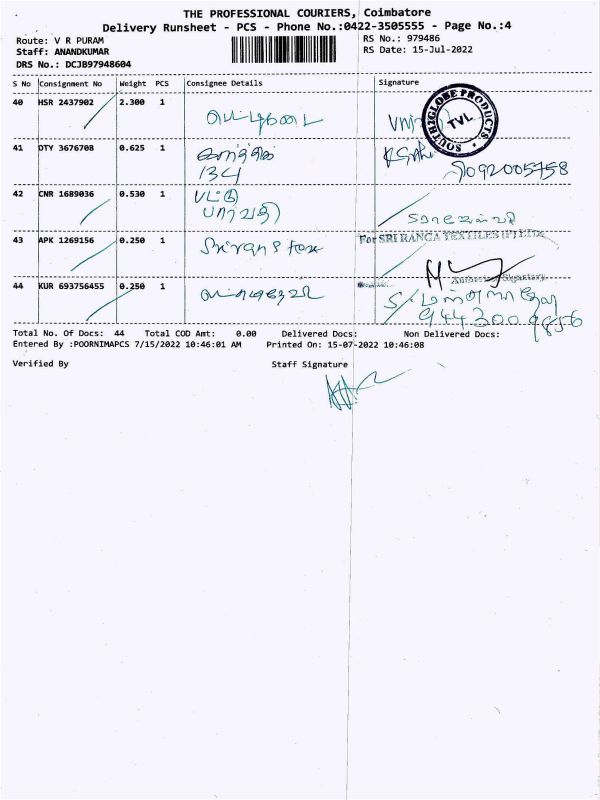 THE PROFESSIONAL COURIERS, Coimbatore
Delivery Runsheet - PCS - Phone No.:0422-3505555 - Page No.:4
Route: V R PURAM
RS No.: 979486
Staff: ANANDKUMAR
RS Date: 15-Jul-2022
DRS No.: DCJB97948604
S No Consignment No Weight PCS Consignee Details Signature
40 HSR 2437902 2.300 1
SOUTH2GLOBE PRODUCTS
TVL
41 DTY 3676708 0.625 1
134
9092005758
42 CNR 1689036 0.530 1
பார்வதி
43 APK 1269156 0.250 1
For SRI RANGA TEXTILES (P) LTD.
Authorised Signatory
44 KUR 693756455 0.250 1
9443009856
Total No. Of Docs: 44 Total COD Amt: 0.00 Delivered Docs: Non Delivered Docs:
Entered By :POORNIMAPCS 7/15/2022 10:46:01 AM Printed On: 15-07-2022 10:46:08
Verified By Staff Signature